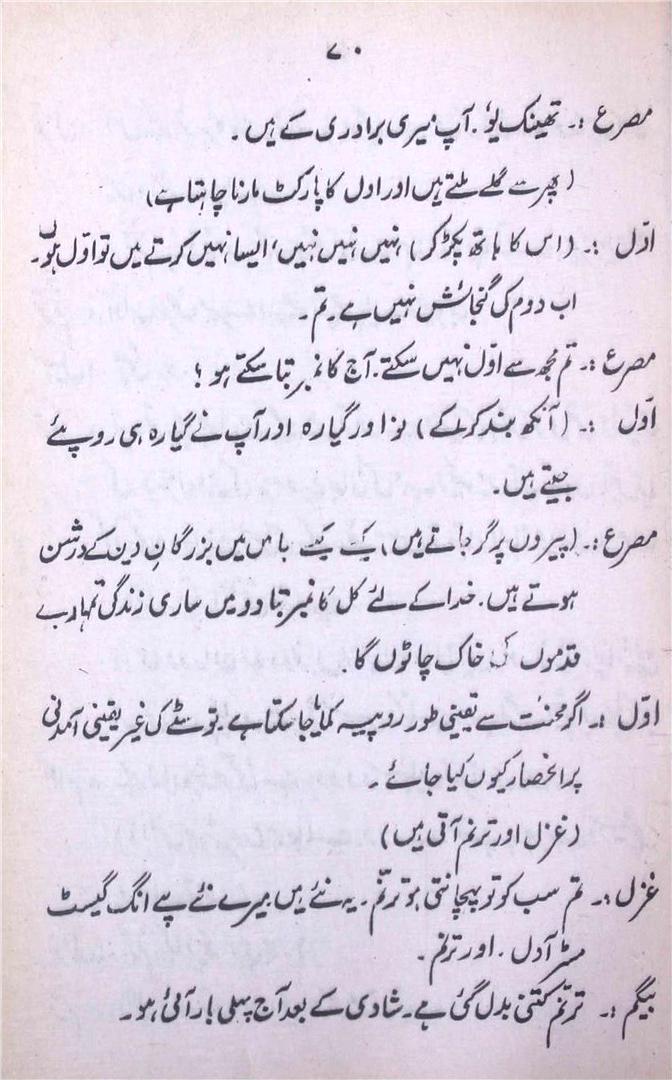 ۷۰
مصرع :۔ تھینک یو۔ آپ میری برادری کے ہیں۔
(پھر سے گلے ملتے ہیں اور اول کا پارکٹ مارنا چاہتا ہے)
اوّل :۔ (اس کا ہاتھ پکڑ کر) نہیں نہیں نہیں، ایسا نہیں کرتے میں تو اوّل ہوں۔
اب دوم کی گنجائش نہیں ہے۔ تم۔
مصرع :۔ تم مجھ سے اوّل نہیں سکتے۔ آج کا نمبر بتا سکتے ہو !
اوّل :۔ (آنکھ بند کر کے) نو اور گیارہ اور آپ نے گیارہ ہی روپئے
جیتے ہیں۔
مصرع :۔ (پیروں پر گر جاتے ہیں) پے پے باس میں بزرگانِ دین کے درشن
ہوتے ہیں۔ خدا کے لئے کل کا نمبر بتا دو میں ساری زندگی تمہارے
قدموں کی خاک چاٹوں گا۔
اوّل :۔ اگر محنت سے یقینی طور روپیہ کمایا جا سکتا ہے تو سٹے کی غیر یقینی آمدنی
پر انحصار کیوں کیا جائے۔
(غزل اور ترنم آتی ہیں)
غزل :۔ تم سب کو تو پہچانتی ہو ترنّم۔ یہ نئے ہیں میرے نئے پے انگ گیسٹ
مسٹر آول۔ اور ترنم۔
بیگم :۔ ترنّم کتنی بدل گئی ہے۔ شادی کے بعد آج پہلی بار آئی ہو۔